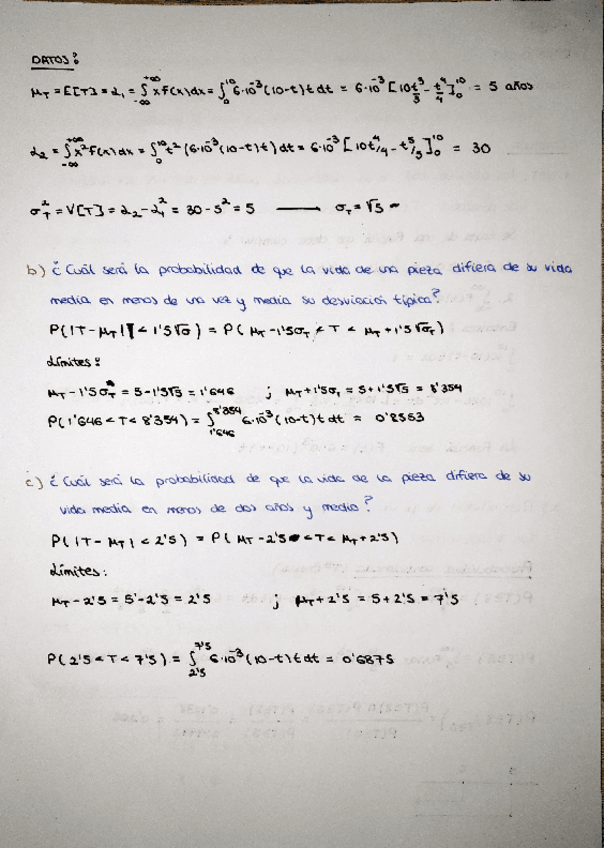 DATOS:
μ_T = E[T] = α₁ = ∫_{-∞}^{+∞} x f(x) dx = ∫_0^{10} 6·10⁻³ (10-t) t t dt = 6·10⁻³ [10t³/3 - t⁴/4]_0^{10} = 5 años
α₂ = ∫_{-∞}^{+∞} x² f(x) dx = ∫_0^{10} t² (6·10⁻³ (10-t) t) dt = 6·10⁻³ [10t⁴/4 - t⁵/5]_0^{10} = 30
σ_T² = V[T] = α₂ - α₁² = 30 - 5² = 5 —— σ_T = √5
b) ¿Cuál será la probabilidad de que la vida de una pieza difiera de su vida
media en menos de una vez y media su desviación típica?
P(|T - μ_T| < 1'5√σ) = P(μ_T - 1'5σ_T < T < μ_T + 1'5√σ_T)
Límites:
μ_T - 1'5σ_T = 5 - 1'5√5 = 1'646 ; μ_T + 1'5σ_T = 5 + 1'5√5 = 8'354
P(1'646 < T < 8'354) = ∫_{1'646}^{8'354} 6·10⁻³ (10-t) t dt = 0'8553
c) ¿Cuál será la probabilidad de que la vida de la pieza difiera de su
vida media en menos de dos años y medio?
P(|T - μ_T| < 2'5) = P(μ_T - 2'5 < T < μ_T + 2'5)
Límites:
μ_T - 2'5 = 5 - 2'5 = 2'5 ; μ_T + 2'5 = 5 + 2'5 = 7'5
P(2'5 < T < 7'5) = ∫_{2'5}^{7'5} 6·10⁻³ (10-t) t dt = 0'6875